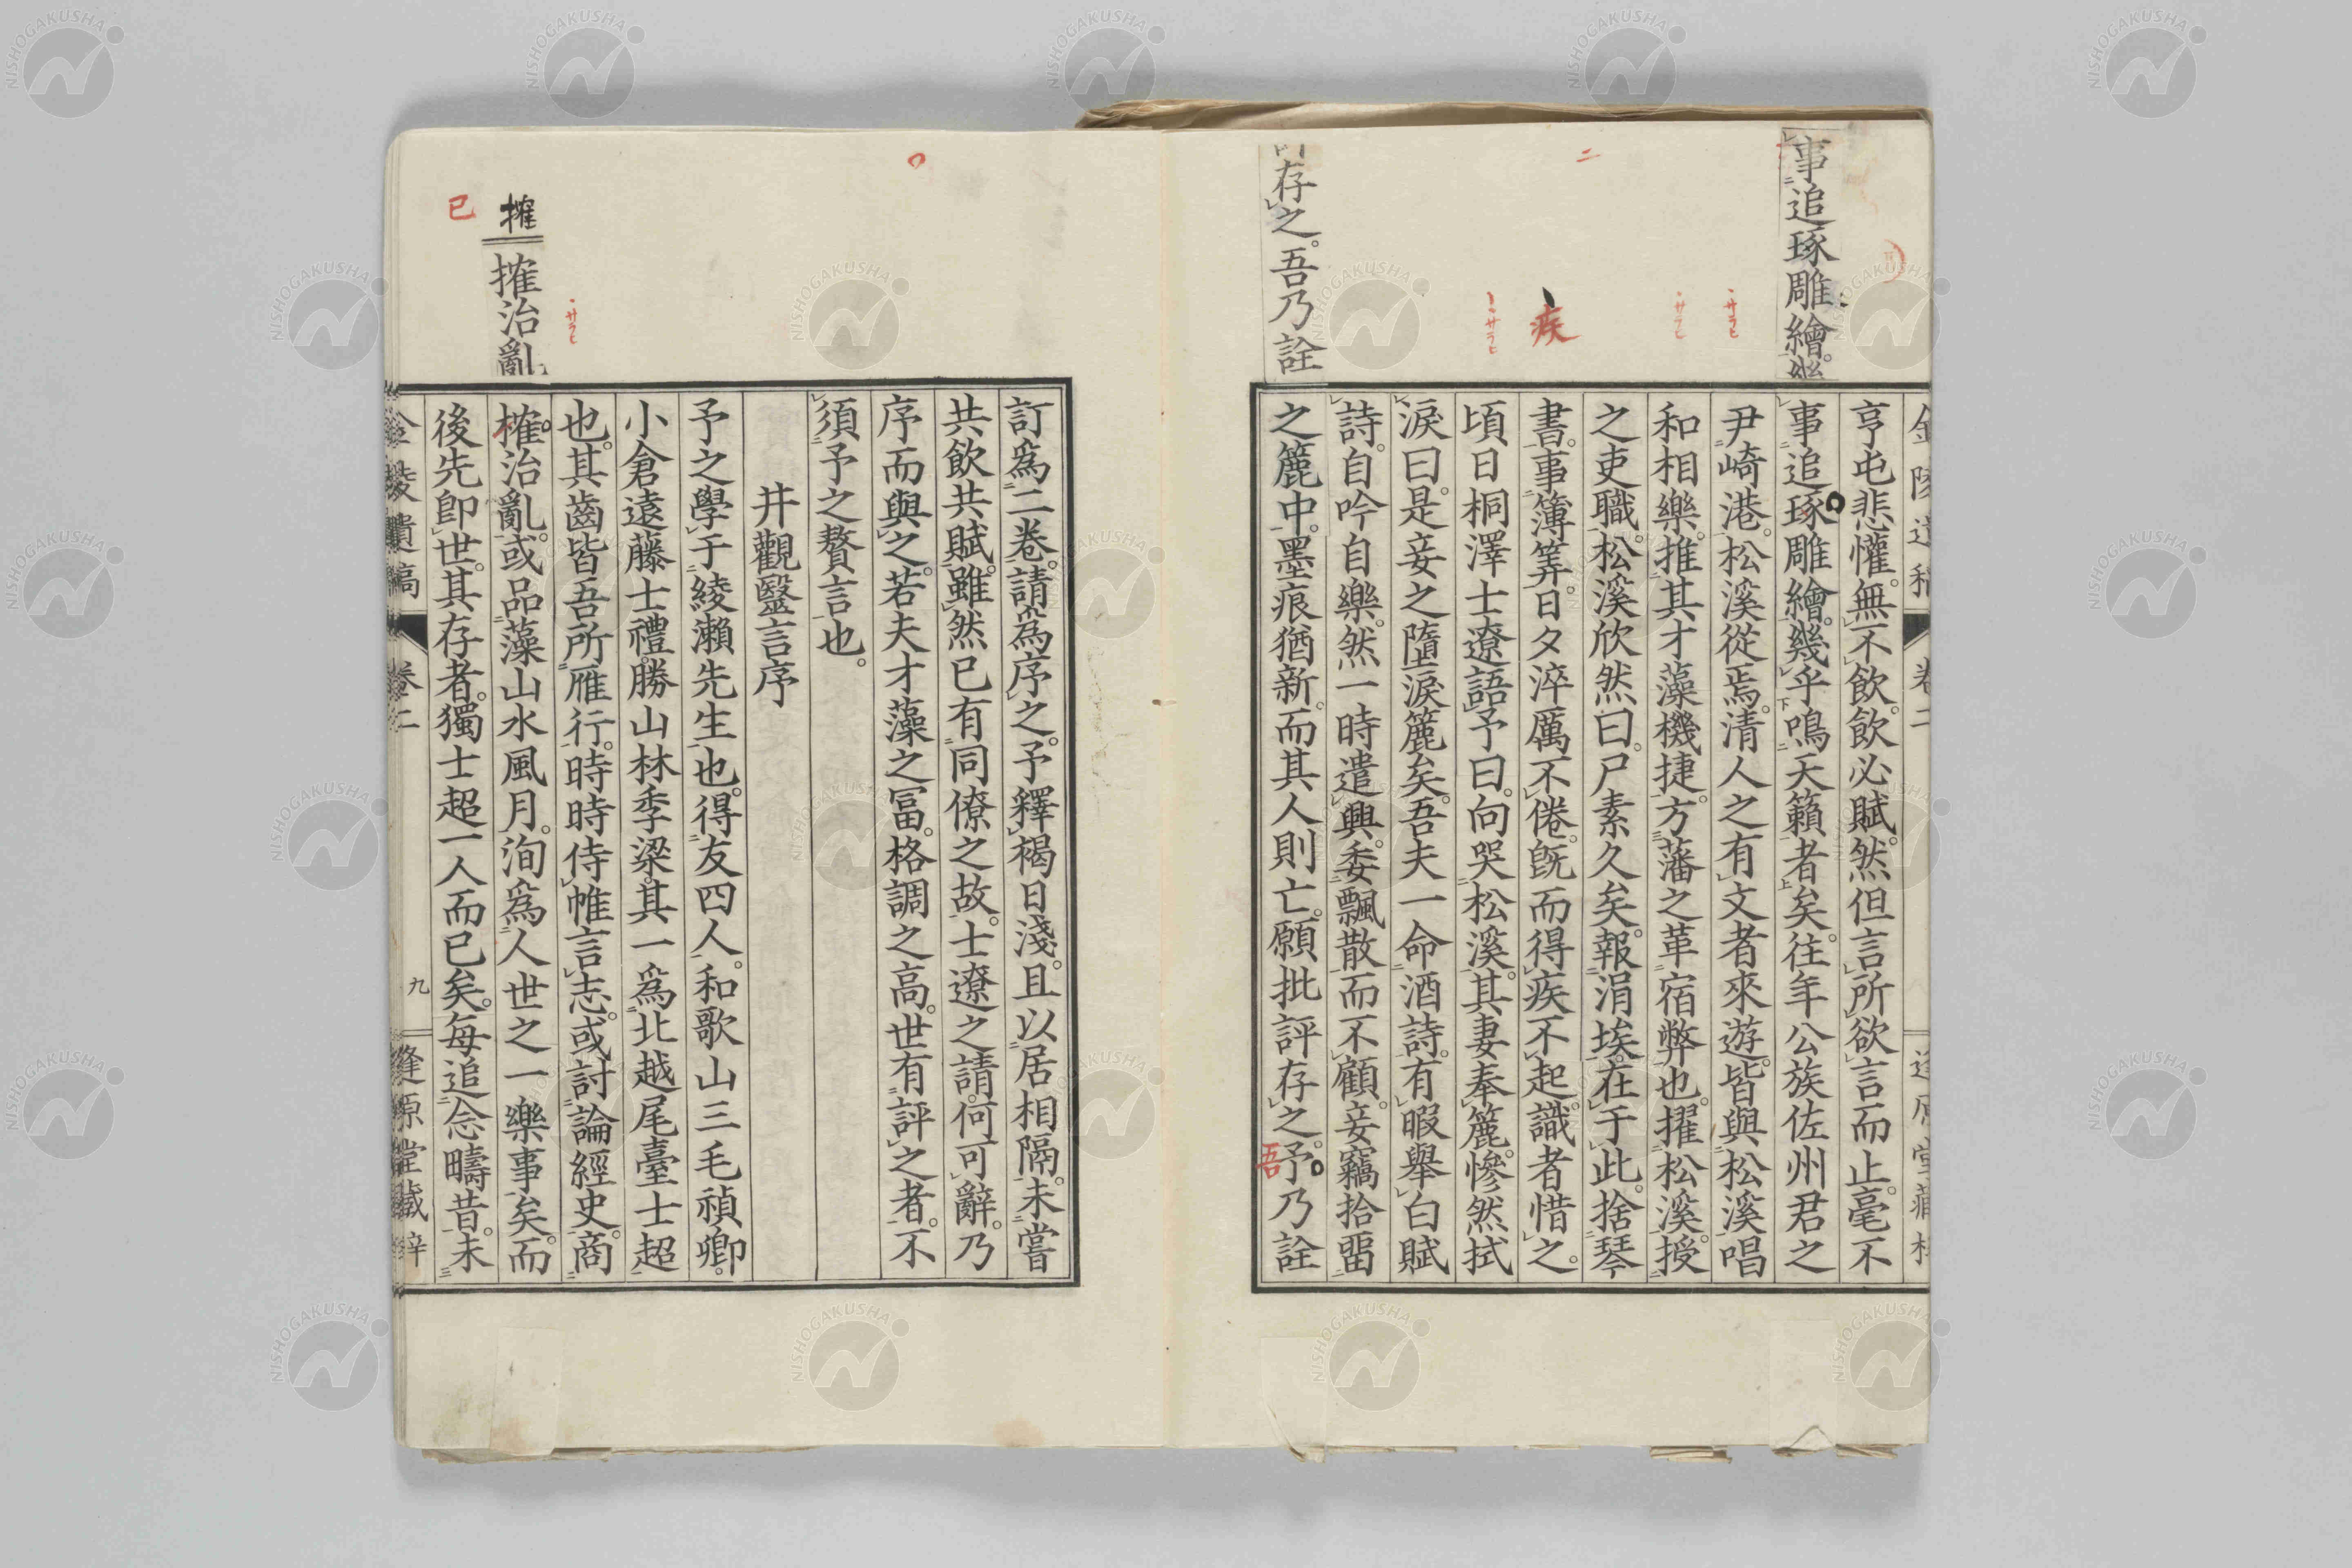 事追琢雕繪幾
疾
存之。吾乃詮
亨屯悲懽。無不飮。飮必賦。然但言所欲言而止。毫不
事追琢雕繪。幾乎鳴天籟者矣。往年公族佐州君之
尹崎港。松溪從焉。清人之有文者來遊。皆與松溪唱
和相樂。推其才藻機捷。方藩之革宿弊也。擢松溪。授
之吏職。松溪欣然曰。尸素久矣。報涓埃。在于此。捨琴
書。事簿筭。日夕淬厲不倦。旣而得疾不起。識者惜之。
頃日桐澤士遼語予曰。向哭松溪。其妻奉簏。慘然拭
淚曰。是妾之墮淚簏矣。吾夫一命酒詩。有暇舉白賦
詩。自吟自樂。然一時遣興。委飄散而不顧。妾竊拾畱
之簏中。墨痕猶新。而其人則亡。願批評存之。予乃詮
吾
金陵遺稿
卷二
逢原堂藏梓
搉
搉治亂
已
訂爲二卷。請爲序之。予釋褐日淺。且以居相隔。未嘗
共飮共賦。雖然已有同僚之故。士遼之請。何可辭。乃
序而與之。若夫才藻之冨。格調之高。世有評之者。不
須予之贅言也。
井觀毉言序
予之學于綾瀨先生也。得友四人。和歌山三毛禎卿。
小倉遠藤士禮。勝山林季梁。其一爲北越尾臺士超
也。其齒皆吾所雁行。時時侍帷言志。或討論經史。商
搉治亂。或品藻山水風月。洵爲人世之一樂事矣。而
後先卽世。其存者。獨士超一人而已矣。每追念疇昔。未
金陵遺稿
卷二
九
逢原堂藏梓
NISHOGAKUSHA